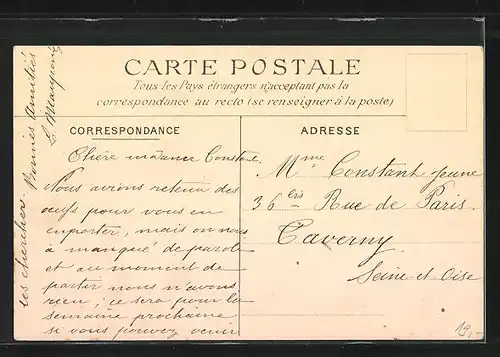 CARTE POSTALE
Tous les Pays étrangers n'acceptant pas la
correspondance au recto (se renseigner à la poste)
CORRESPONDANCE
ADRESSE
Chère madame Constant
Nous avions retenu des
œufs pour vous en
emporter, mais on nous
a manqué de parole
et au moment de
partir nous n'avons
rien; ce sera pour la
semaine prochaine
si vous pouvez venir
les chercher. Bonnes amitiés
Mme Constant jeune
36 bis Rue de Paris
Taverny
Seine-et-Oise
19,-